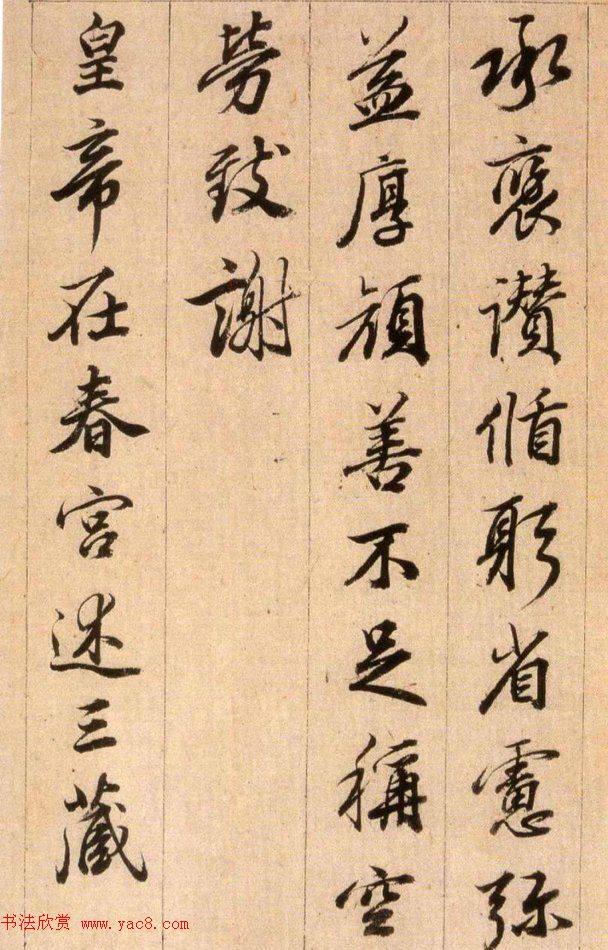 承褒讚循躬省慮弥
益厚顔善不足稱空
勞致謝
皇帝在春宮述三藏
书法欣赏 www.yac8.com